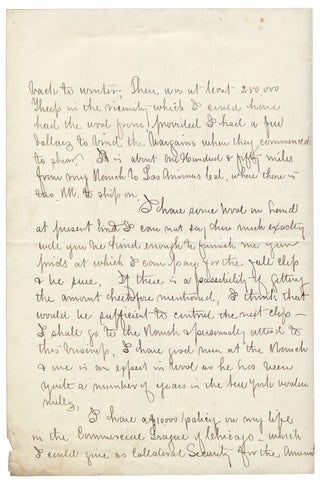 back to winter, There was at least 250.000
Sheep in the vicinity which I could have
had the wool from provided I had a few
dollars to bind the bargains when they commenced
to shear. It is about one Hundred & fifty miles
from my Ranch to Las Animas Col. where there is
two RR. to ship on.
I have some Wool on hand
at present but I can not say how much exactly
will you be kind enough to furnish me your
prices at which I can pay for the fall clip
& be sure. If there is a possibility of getting
the amount heretofore mentioned, I think that
would be sufficient to control the next clip—
I shall go to the Ranch & personally attend to
this business, I have good men at the Ranch
& one is an expert in Wool as he has been
quite a number of years in the New York woolen
mills,
I have a $10000 policy on my life
in the Commercial League of Chicago— which
I could give as Collateral Security for the Amount